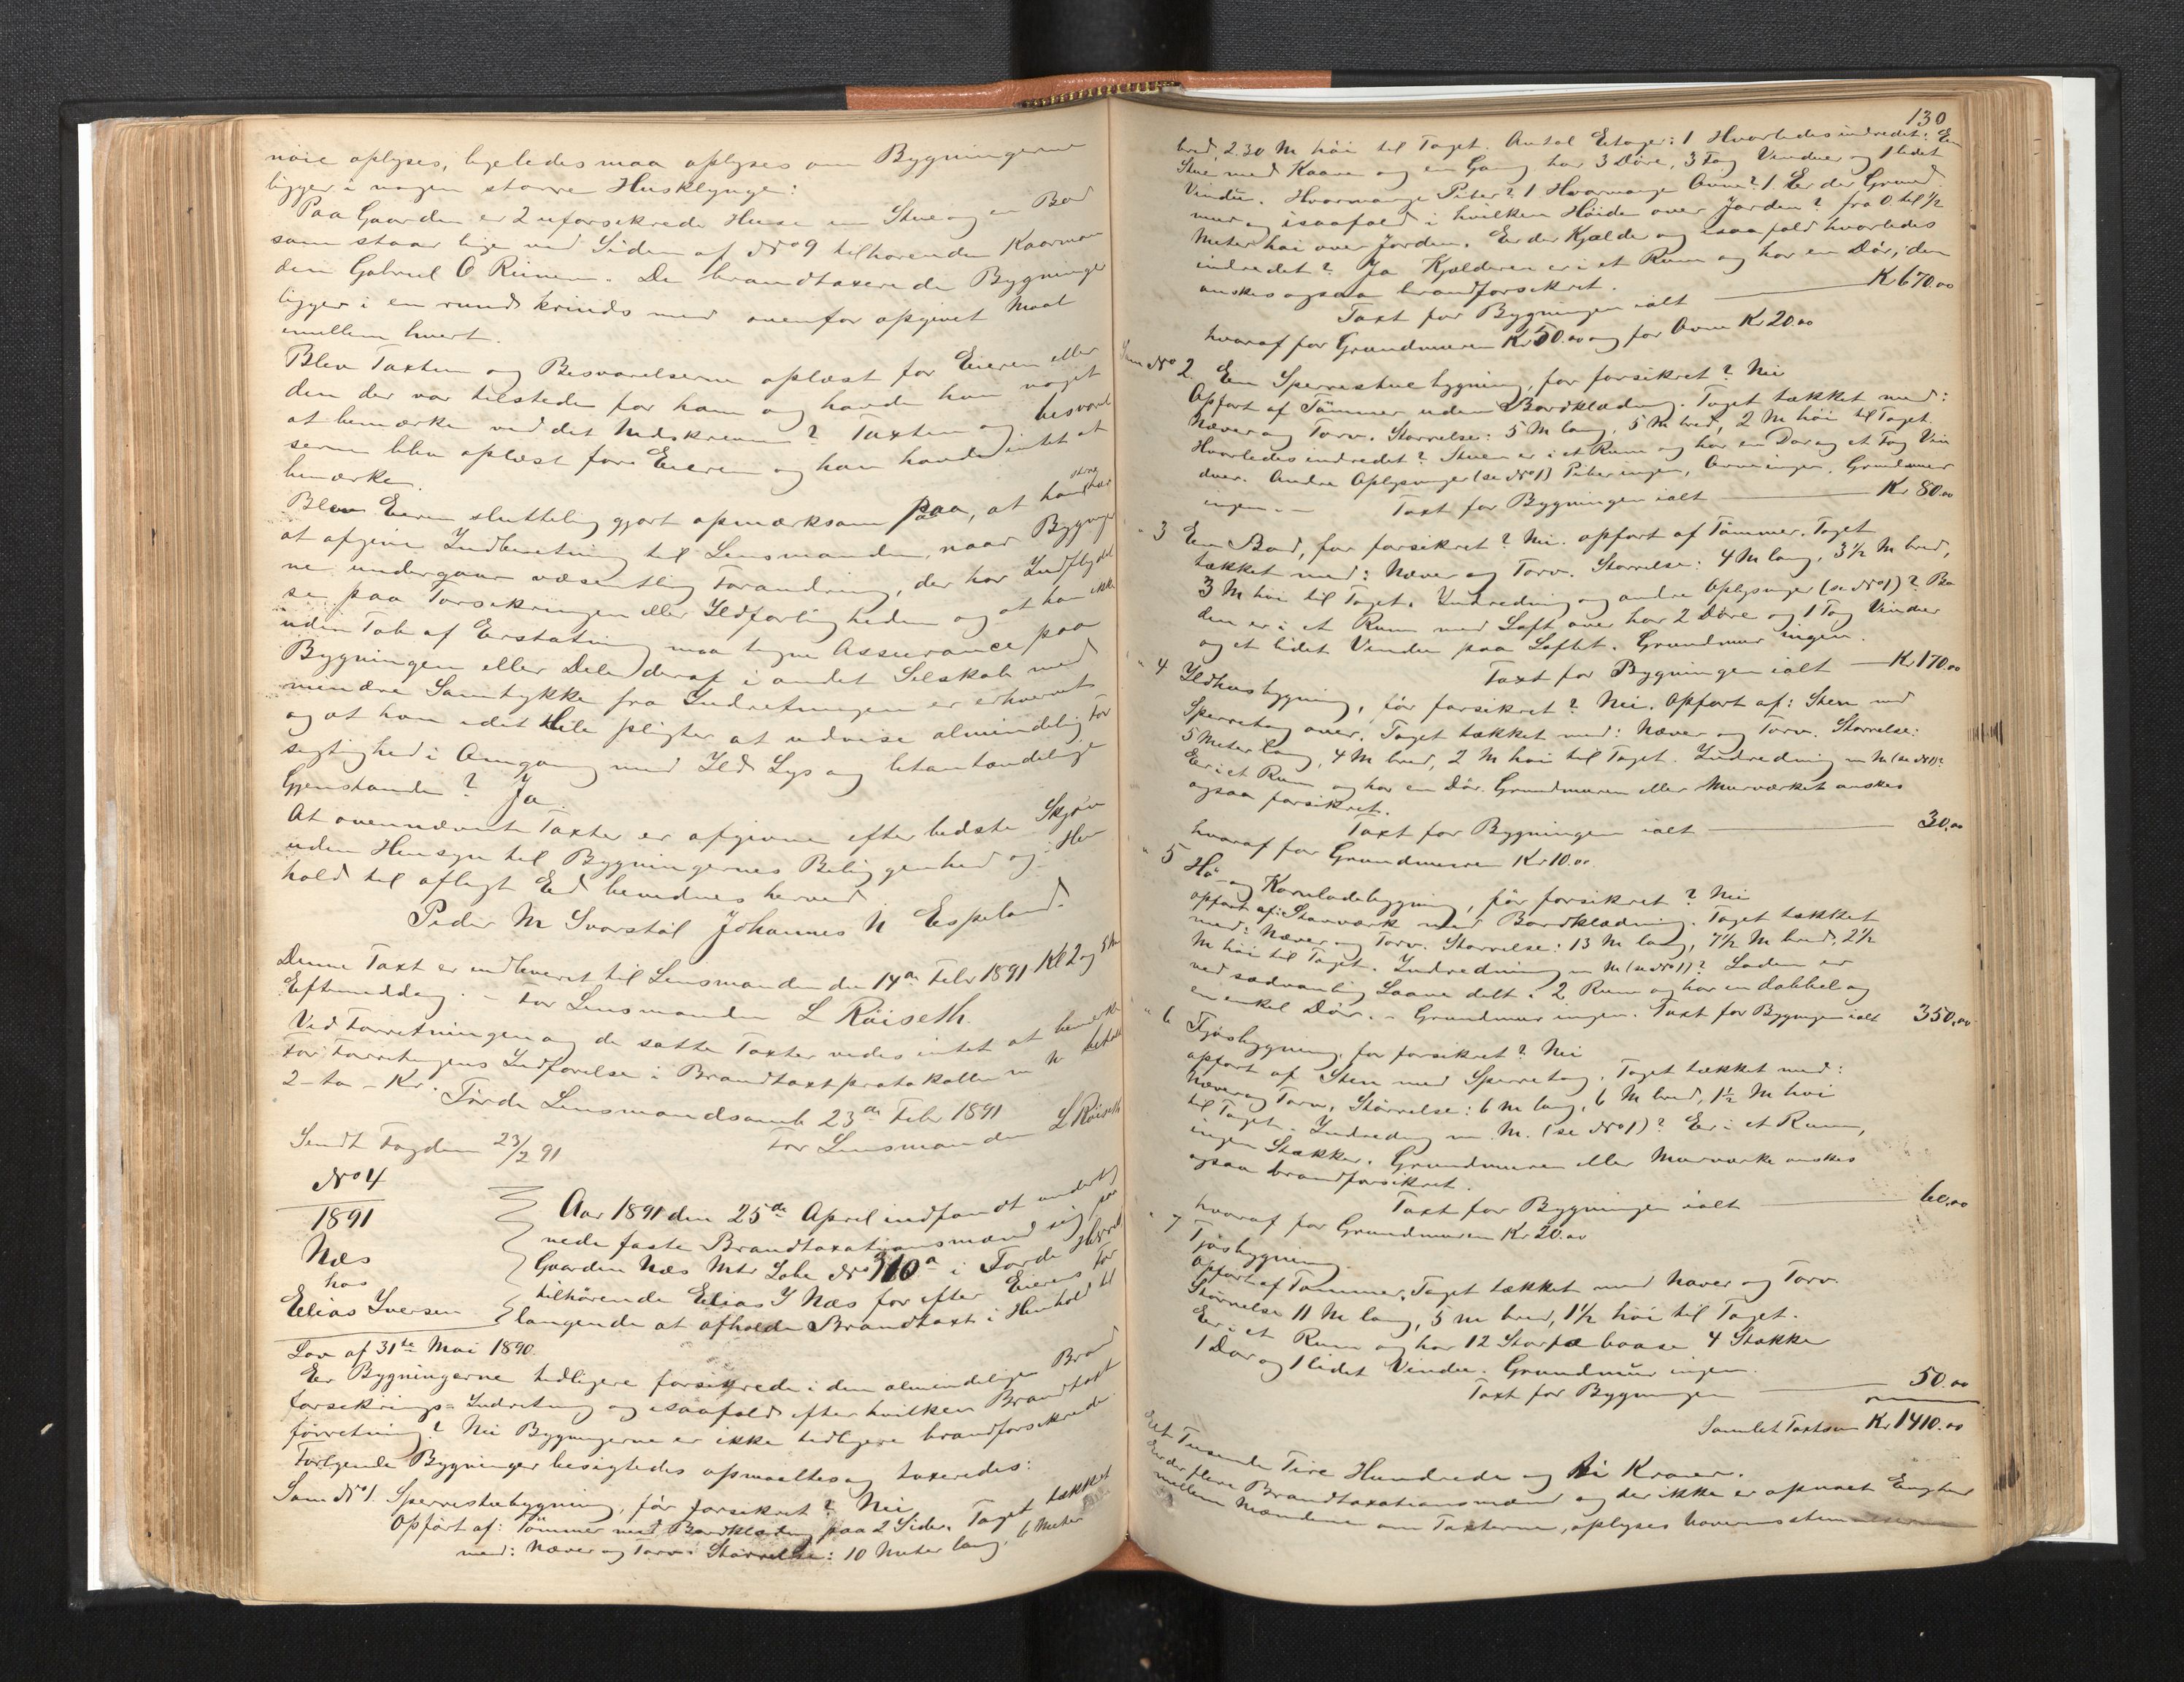 nöie oplyses, ligeledes maa oplyses om Bygningerne
ligger i nogen større Husklynge:
Paa Gaarden er 2 uforsekrede Huse en Stue og en Bod
som staar lige ved Siden af No 9 tilhörende Kaarman
den Gabriel O Rinnen. De brandtaxerede Bygninger
ligger i en rund krinds med ovenfor opgivet Maal
imellem hvert.
Blev Taxten og Besvarelserne oplæst for Eieren eller
den der var tilstede for ham og havde han noget
at bemærke ved det Nedskrevne? Taxten og besvarel
serne blev oplæst for Eieren og han havde intet at
bemærke.
Blev Eieren sluttelig gjort opmærksom paa, at han har
at afgive Indberetning til Lensmanden, naar Bygninger
ne undergaar væsentlig Forandring, der har Indflydel
se paa Forsekringen eller Ildfarligheden og at han ikke
uden Tab af Erstatning maa tegne Assurance paa
Bygningen eller Dele deraf i andet Selskab med
mindre Samtykke fra Indretningen er erhvervet
og at han i det Hele pligter at udvise almindelig For
sigtighed i Omgang med Ild Lys og letantændelige
Gjenstande? Ja.
At ovennævnte Taxter er afgivne efter bedste Skjøn
uden Hensyn til Bygningernes Beliggenhed og i Hen
hold til aflagt Ed bevidnes herved
Peder M Svorstøl Johannes N Espeland.
Denne Taxt er indleveret til Lensmanden den 14de Febr 1891 Kl 2 og 5 M
Eftermiddag. - For Lensmanden L Röiseth.
Ved Forretningen og de satte Taxter vides intet at bemerke
For Forretningens Indførelse i Brandtaxtprotokollen er betalt
2 - to - Kr. Förde Lensmandsomb 23de Febr 1891
Sendt Fogden 23/2 91 For Lensmanden L Röiseth
No 4
1891
Næs
hos
Elias Iversen
Aar 1891 den 25de April indfandt underteg
nede faste Brandtaxationsmænd sig paa
Gaarden Næs Mtr Löbe No 310a i Förde Herred
tilhörende Elias I Næs for efter Eierens For
langende at afholde Brandtaxt i Henhold til
Lov af 31te Mai 1890.
Er Bygningerne tidligere forsikrede i den almindelige Brand
forsekrings-Indretning og isaafald efter hvilken Brandtaxt
forretning? Nei Bygningerne er ikke tidligere brandforsekrede
Følgende Bygninger besigtedes opmaaltes og taxeredes:
Som No 1. Sperrestuebygning, för forsikret? Nei
Opfört af: Tömmer med Bordklædning paa 2 Sider. Taget tækket
med: Næver og Torv. Störrelse: 10 Meter lang, 6 Meter
130
bred, 2.30 M höi til Taget. Antal Etager: 1 Hvorledes indredet: En
Stue med Kaave og en Gang har 3 Döre, 3 Fag Vinduer og 1 lidet
Vindu. Hvormange Piber? 1 Hvormange Ovne? 1. Er der Grund
mur og isaafald i hvilken Höide over Jorden? fra 0 til 1/2
Meter höi over Jorden. Er der Kjelder og isaafald hvorledes
indredet? Ja Kjelderen er i et Rum og har en Dör, den
önskes ogsaa brandforsekret.
Taxt for Bygningen ialt Kr 670.00
hvoraf for Grundmuren Kr 50.00 og for Ovne Kr 20.00
Som No 2. En Sperrestue bygning, for forsikret? Nei
Opfört af Tömmer uden Bordklædning. Taget tækket med:
Næver og Torv. Størrelse: 5 M lang, 5 M bred, 2 M höi til Taget.
Hvorledes indredet? Stuen er i et Rum og har en Dør og et Fag Vin
duer. Andre Oplysninger (se No 1) Piber ingen, Ovne ingen, Grundmur
ingen. - Taxt for Bygningen ialt Kr 80.00
" 3 En Bod, for forsikret? Nei. opfört af Tömmer. Taget
tækket med: Næver og Torv. Størrelse: 4 M lang, 3 1/2 M bred,
3 M höi til Taget. Indredning og andre Oplysninger (se No 1)? Bo
den er i et Rum med Loft over har 2 Döre og 1 Fag Vinduer
og et lidet Vindu paa Loftet. Grundmur ingen.
Taxt for Bygningen ialt Kr 170.00
" 4 Ildhusbygning, för forsikret? Nei. Opfört af: Sten med
Sperretag over. Taget tækket med: Næver og Torv. Størrelse:
5 Meter lang, 4 M bred, 2 M höi til Taget. Indredning m M (se No 1)?
Er i et Rum og har en Dör. Grundmuren eller Murværket ønskes
ogsaa forsikret.
Taxt for Bygningen ialt 30.00
hvoraf for Grundmuren Kr 10.00
" 5 Hö- og Kornladebygning, för forsikret? Nei
opfört af: Stavværk med Bordklædning. Taget tækket
med: Næver og Torv. Störrelse: 13 M lang, 7 1/2 M bred, 2 1/2
M höi til Taget. Indredning m M (se No 1)? Laden er
ved sædvanlig Laave delt i 2 Rum og har en dobbel og
en enkel Dör. - Grundmur ingen. Taxt for Bygningen ialt 350.00
" 6 Fjösbygning, for forsikret? Nei
opfört af Sten med Sperretag. Taget tækket med:
Næver og Torv. Störrelse: 6 M lang, 6 M bred, 1 1/2 M höi
til Taget. Indredning m. M. (se No 1)? Er i et Rum,
ingen Stakker. Grundmuren eller Murværke ønskes
ogsaa brandforsikret.
Taxt for Bygningen ialt 60.00
hvoraf for Grundmuren Kr 20.00
" 7 Fjösbygning.
Opfört af Tømmer. Taget tækket med Næver og Torv.
Störrelse 11 M lang, 5 M bred, 1 1/2 höi til Taget.
Er i et Rum og har 12 Storfæ baase 4 Stakke
1 Dør og 1 lidet Vindu. Grundmur ingen.
Taxt for Bygningen 50.00
Samlet Taxtsum Kr 1410.00
Et Tusende Fire Hundrede og Ti Kroner.
Er der flere Brandtaxationsmænd og der ikke er opnaaet Enighed
mellem Mændene om Taxterne, oplyses hovedstemmerne